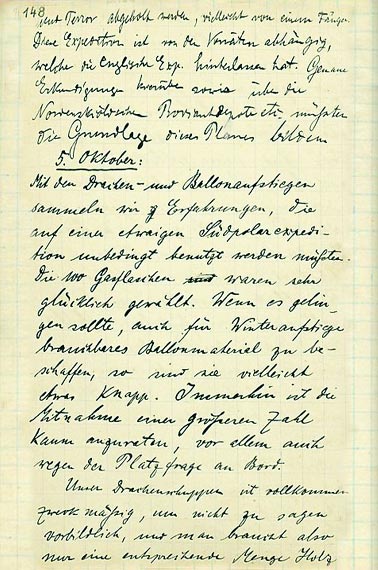 148
mit Terror abgeholt werden, vielleicht von einem Fänger.
Diese Expedition ist von den Vorräten abhängig,
welche die englische Exp. hinterlassen hat. Genaue
Erkundigungen hierüber sowie über die
Nordenskjöldschen Proviantdepots etc. müssten
die Grundlage dieses Planes bilden
5. Oktober:
Mit den Drachen- und Ballonaufstiegen
sammeln wir Erfahrungen, die
auf einer etwaigen Südpolarexpedi-
tion unbedingt benutzt werden müssten.
Die 100 Gasflaschen waren sehr
glücklich gewählt. Wenn es gelin-
gen sollte, auch für Winteraufstiege
brauchbares Ballonmaterial zu be-
schaffen, so sind sie vielleicht
etwas knapp. Immerhin ist die
Mitnahme einer grösseren Zahl
kaum anzuraten, vor allem auch
wegen der Platzfrage an Bord.
Unser Drachenschuppen ist vollkommen
zweckmässig, um nicht zu sagen
vorbildlich, und man braucht also
nur eine entsprechende Menge Holz